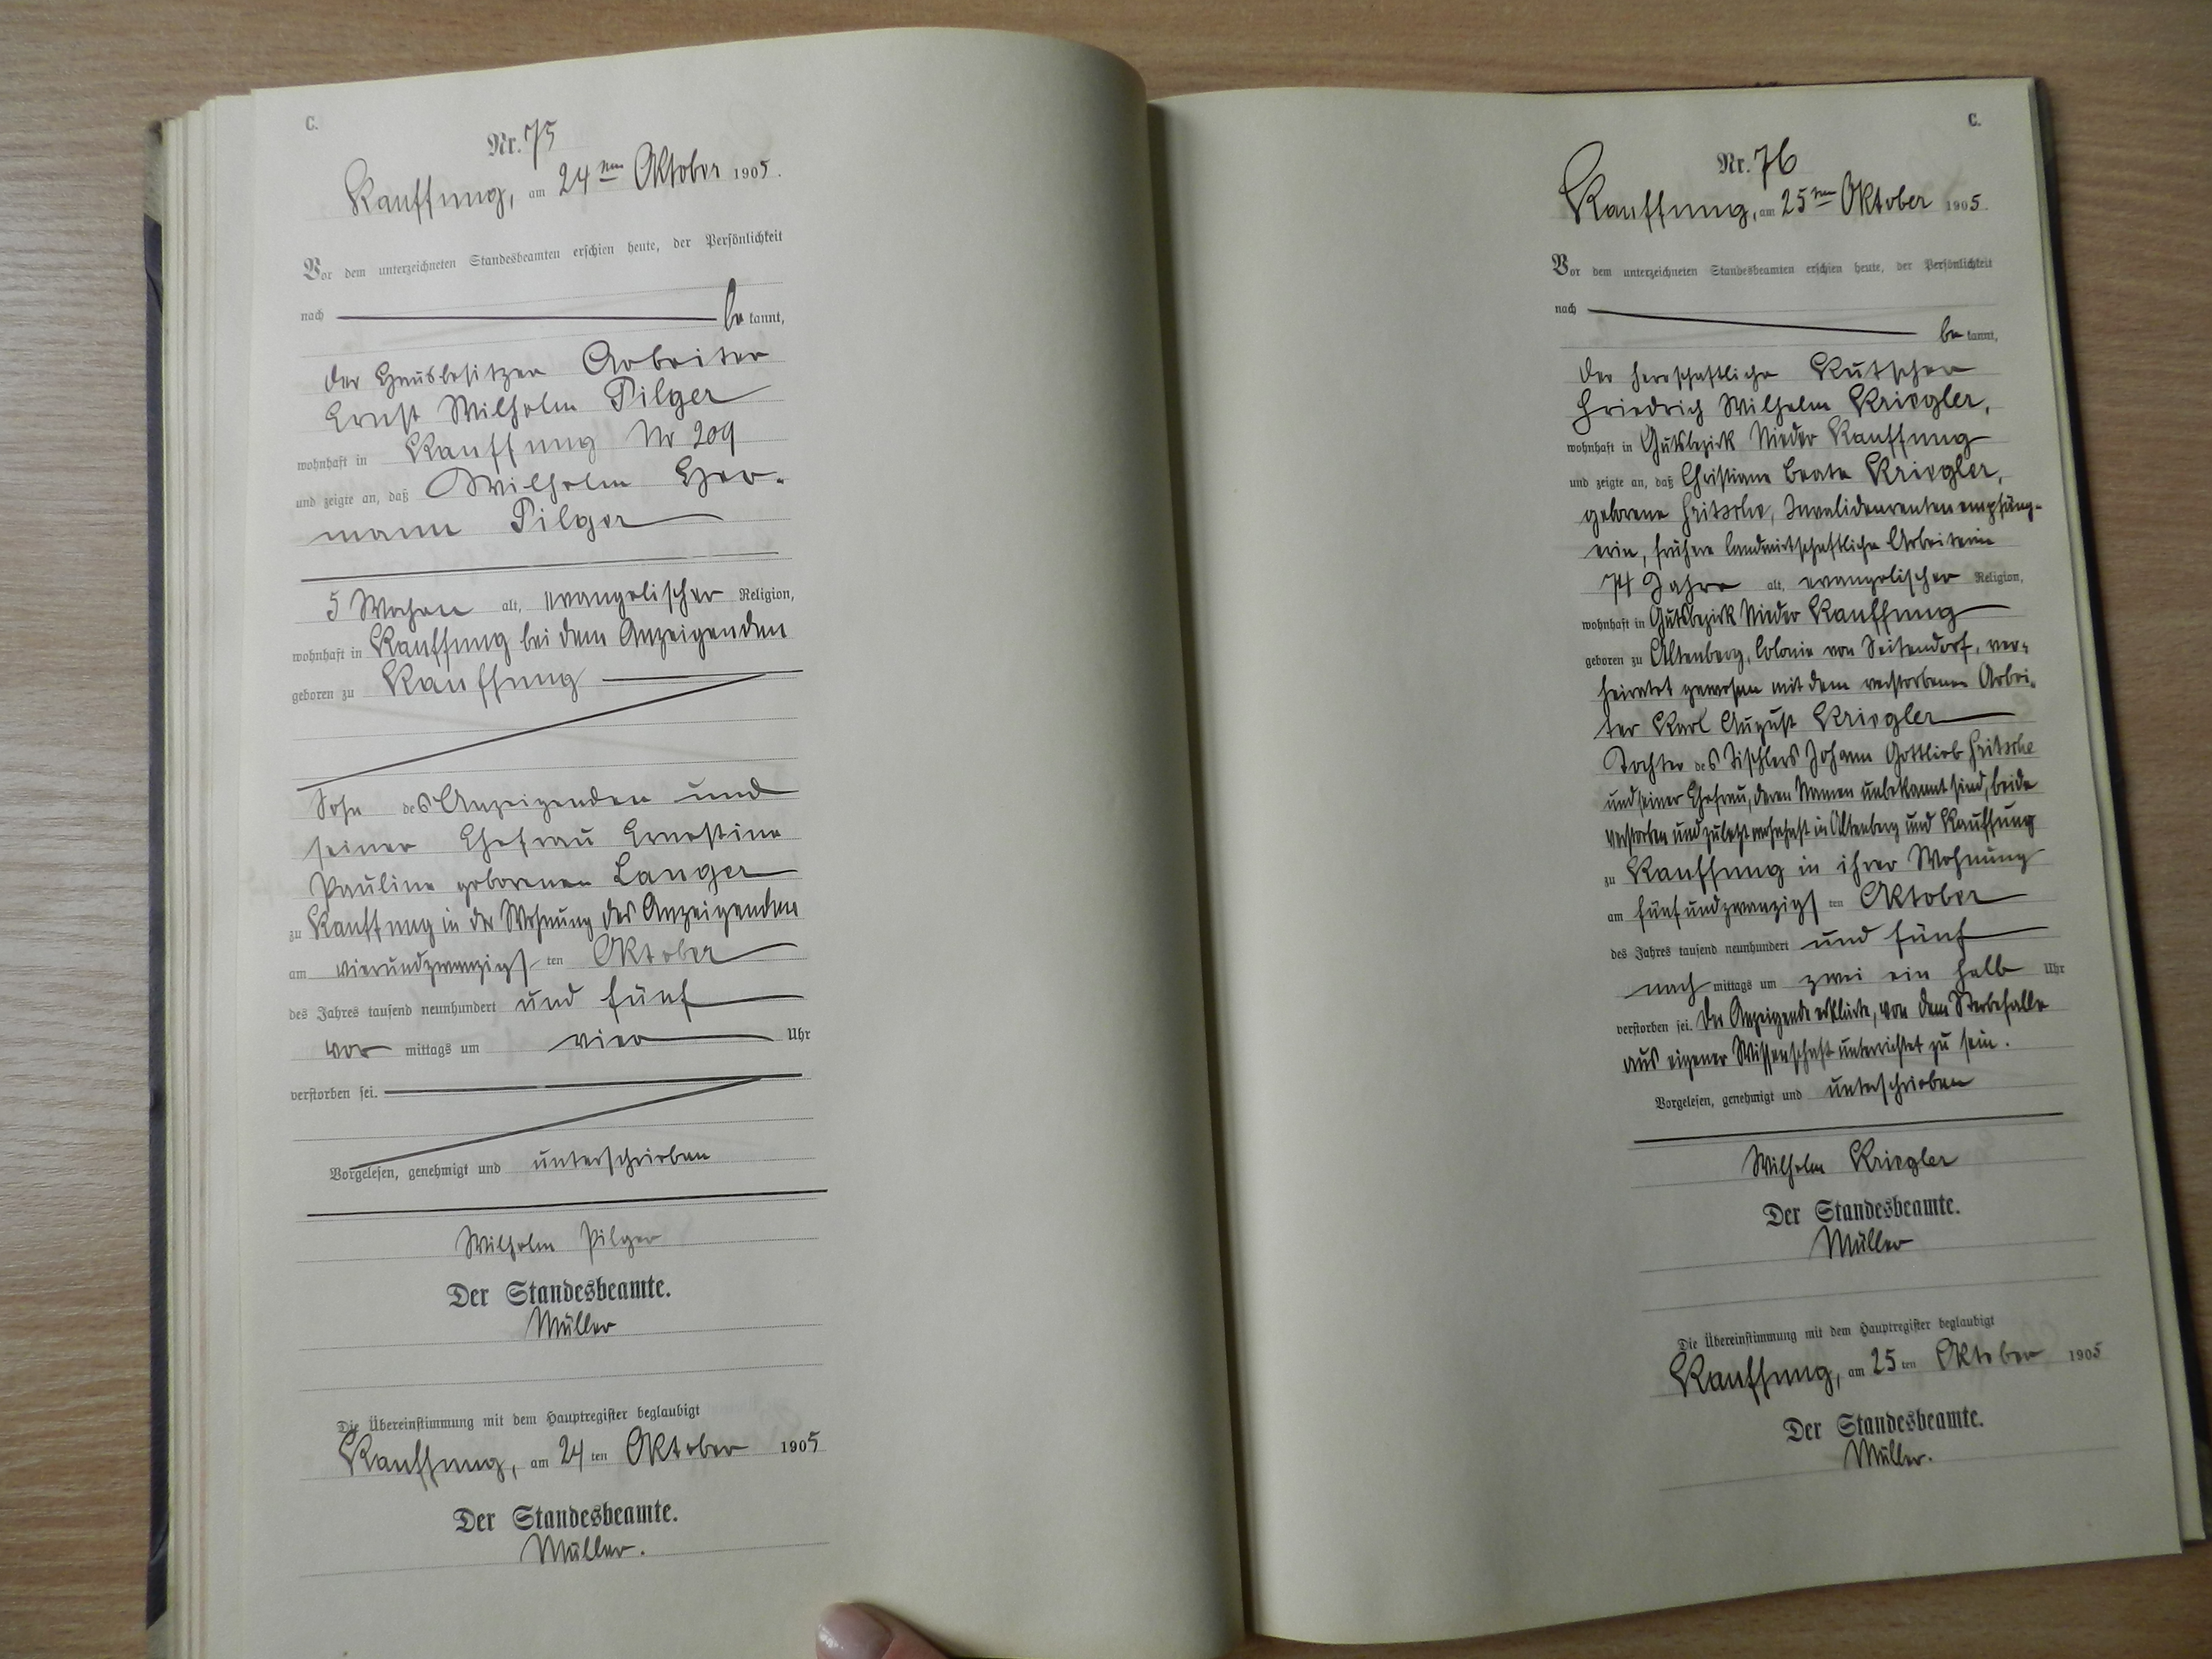 C.
Nr. 75
Kauffung, am 24ten Oktober 1905.
Vor dem unterzeichneten Standesbeamten erschien heute, der Persönlichkeit
nach be kannt,
der Hausbesitzer Arbeiter
Ernst Wilhelm Pilger
wohnhaft in Kauffung Nr 209
und zeigte an, daß Wilhelm Her-
mann Pilger
5 Wochen alt, evangelischer Religion,
wohnhaft in Kauffung bei dem Anzeigenden
geboren zu Kauffung
Sohn des Anzeigenden und
seiner Ehefrau Ernestine
Pauline geborenen Langer
zu Kauffung in der Wohnung des Anzeigenden
am vierundzwanzigs ten Oktober
des Jahres tausend neunhundert und fünf
vor mittags um vier Uhr
verstorben sei.
Vorgelesen, genehmigt und unterschrieben
Wilhelm Pilger
Der Standesbeamte.
Müller
Die Übereinstimmung mit dem Hauptregister beglaubigt
Kauffung, am 24 ten Oktober 1905
Der Standesbeamte.
Müller.
C.
Nr. 76
Kauffung, am 25ten Oktober 1905.
Vor dem unterzeichneten Standesbeamten erschien heute, der Persönlichkeit
nach be kannt,
der herrschaftliche Kutscher
Friedrich Wilhelm Kriegler,
wohnhaft in Gutsbezirk Nieder Kauffung
und zeigte an, daß Christiane Beate Kriegler,
geborene Fritsche, Invalidenrentenempfäng-
erin, frühere landwirtschaftliche Arbeiterin
74 Jahre alt, evangelischer Religion,
wohnhaft in Gutsbezirk Nieder Kauffung
geboren zu Altenberg, Colonie von Seitendorf, ver-
heiratet gewesen mit dem verstorbenen Arbei-
ter Karl August Kriegler
Tochter des Tischlers Johann Gottlieb Fritsche
und seiner Ehefrau, deren Namen unbekannt sind, beide
verstorben und zuletzt wohnhaft in Altenberg und Kauffung
zu Kauffung in ihrer Wohnung
am fünfundzwanzigs ten Oktober
des Jahres tausend neunhundert und fünf
nach mittags um zwei ein halb Uhr
verstorben sei. Der Anzeigende erklärte, von dem Sterbefalle
aus eigener Wissenschaft unterrichtet zu sein.
Vorgelesen, genehmigt und unterschrieben
Wilhelm Kriegler
Der Standesbeamte.
Müller
Die Übereinstimmung mit dem Hauptregister beglaubigt
Kauffung, am 25 ten Oktober 1905
Der Standesbeamte.
Müller.